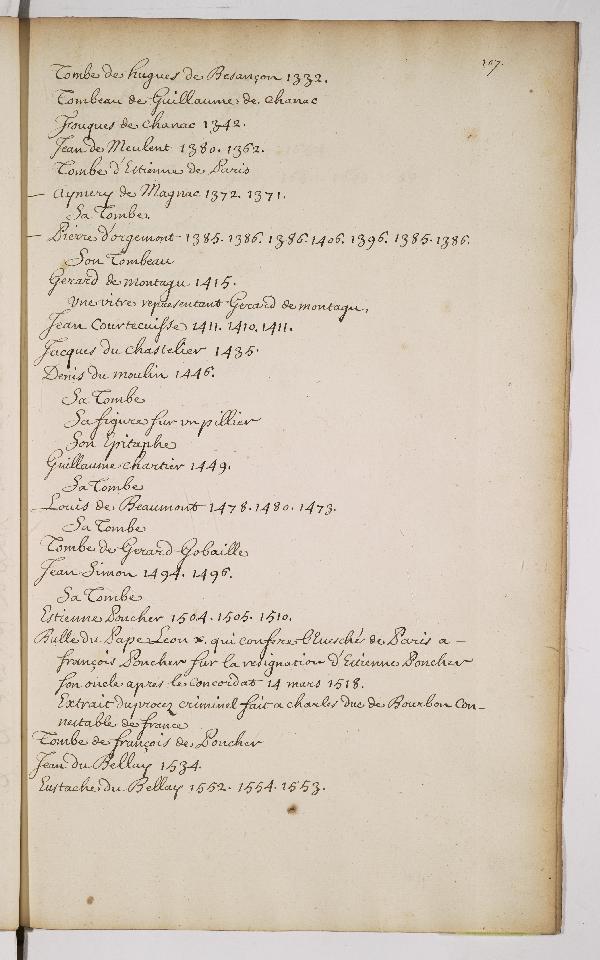 107.
Tombe de hugues de Besançon 1332.
Tombeau de Guillaume de chanac
Fouques de chanac 1342.
Jean de Meulent 1380. 1362.
Tombe d'Estienne de Paris
Aymery de Magnac 1372. 1371.
Sa Tombe.
Pierre d'orgemont 1385. 1386. 1386. 1406. 1396. 1385. 1386.
Son Tombeau
Gerard de montagu 1415.
Vne vitre representant Gerard de montagu.
Jean Courtecuisse 1411. 1410. 1411.
Jacques du chastelier 1435.
Denis du moulin 1446.
Sa Tombe
Sa figure sur vn pillier
Son Epitaphe
Guillaume chartier 1449.
Sa Tombe
Louis de Beaumont 1478. 1480. 1473.
Sa Tombe
Tombe de Gerard Gobaille
Jean Simon 1494. 1496.
Sa Tombe
Estienne Poncher 1504. 1505. 1510.
Bulle du Pape Leon x. qui confere l'Euesché de Paris a -
françois Poncher sur la resignation d'Estienne Poncher
son oncle apres le concordat 14 mars 1518.
Extrait du procez criminel fait a charles duc de Bourbon Con-
nestable de france
Tombe de françois de Poncher
Jean du Bellay 1534.
Eustache du Bellay 1552. 1554. 1553.